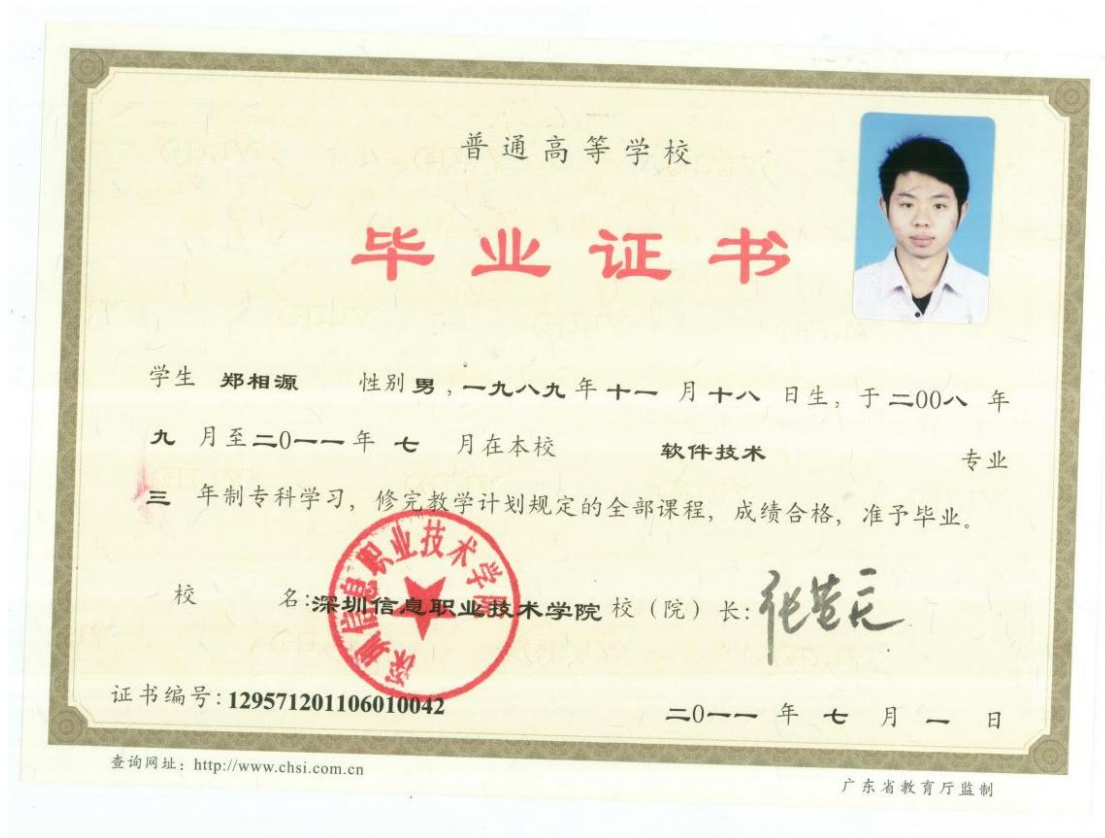 普通高等学校
毕业证书
学生 郑相源 性别 男，一九八九 年 十一 月 十八 日生，于 二00八 年
九 月至 二0一一 年 七 月在本校 软件技术 专业
三 年制专科学习，修完教学计划规定的全部课程，成绩合格，准予毕业。
深圳信息职业技术学院
校 名:深圳信息职业技术学院 校（院）长:
证书编号:129571201106010042
二0一一 年 七 月 一 日
查询网址：http://www.chsi.com.cn
广东省教育厅监制